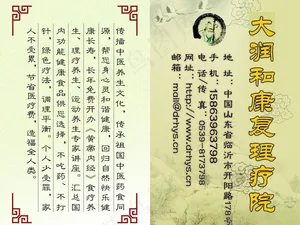 大润和康复理疗院
地 址：中国山东省临沂市开阳路178号
电话/传真：0539-8173798
手机：15863993798
网址：http://www.drnys.cn
邮箱：mail@drnys.cn
传播中医养生文化，传承祖国中医药食同
源，帮您身心灵和谐健康，回归自然快乐健
康长寿，长年免费开办《黄席内经》食疗养
生、理疗养生、运动养生专家讲座。汇总国
内功能健康食品供您选择，不吃药、不打
针，绿色疗法，调理平衡，个人少受罪，家
人不受累，节省医疗费，造福全人类。